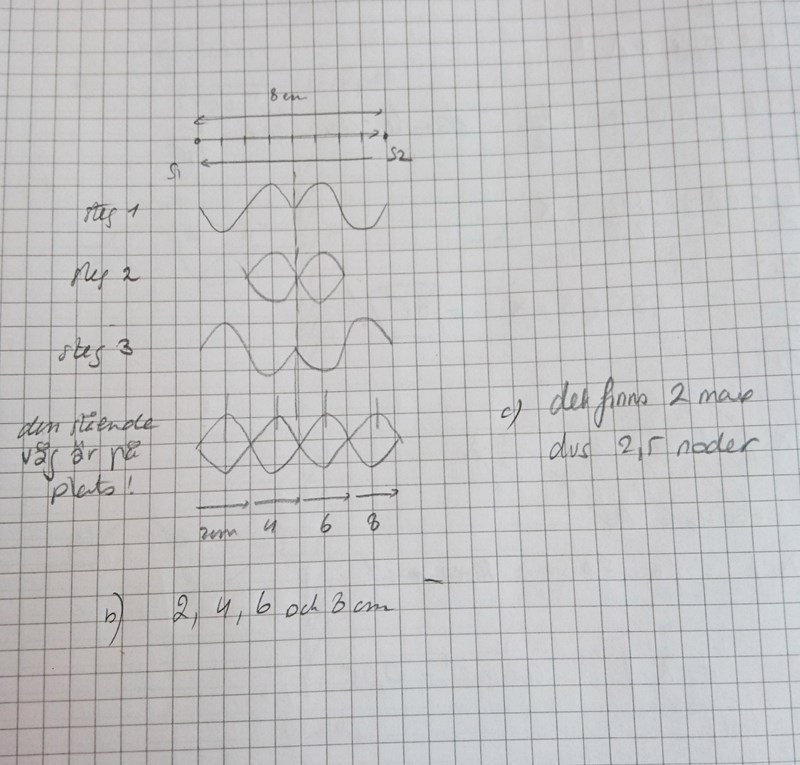 8 cm
S1
S2
steg 1
steg 2
steg 3
den stående
våg är på
plats!
2cm 4 6 8
b) 2, 4, 6 och 8 cm
c) det finns 2 max
dvs 2,5 noder